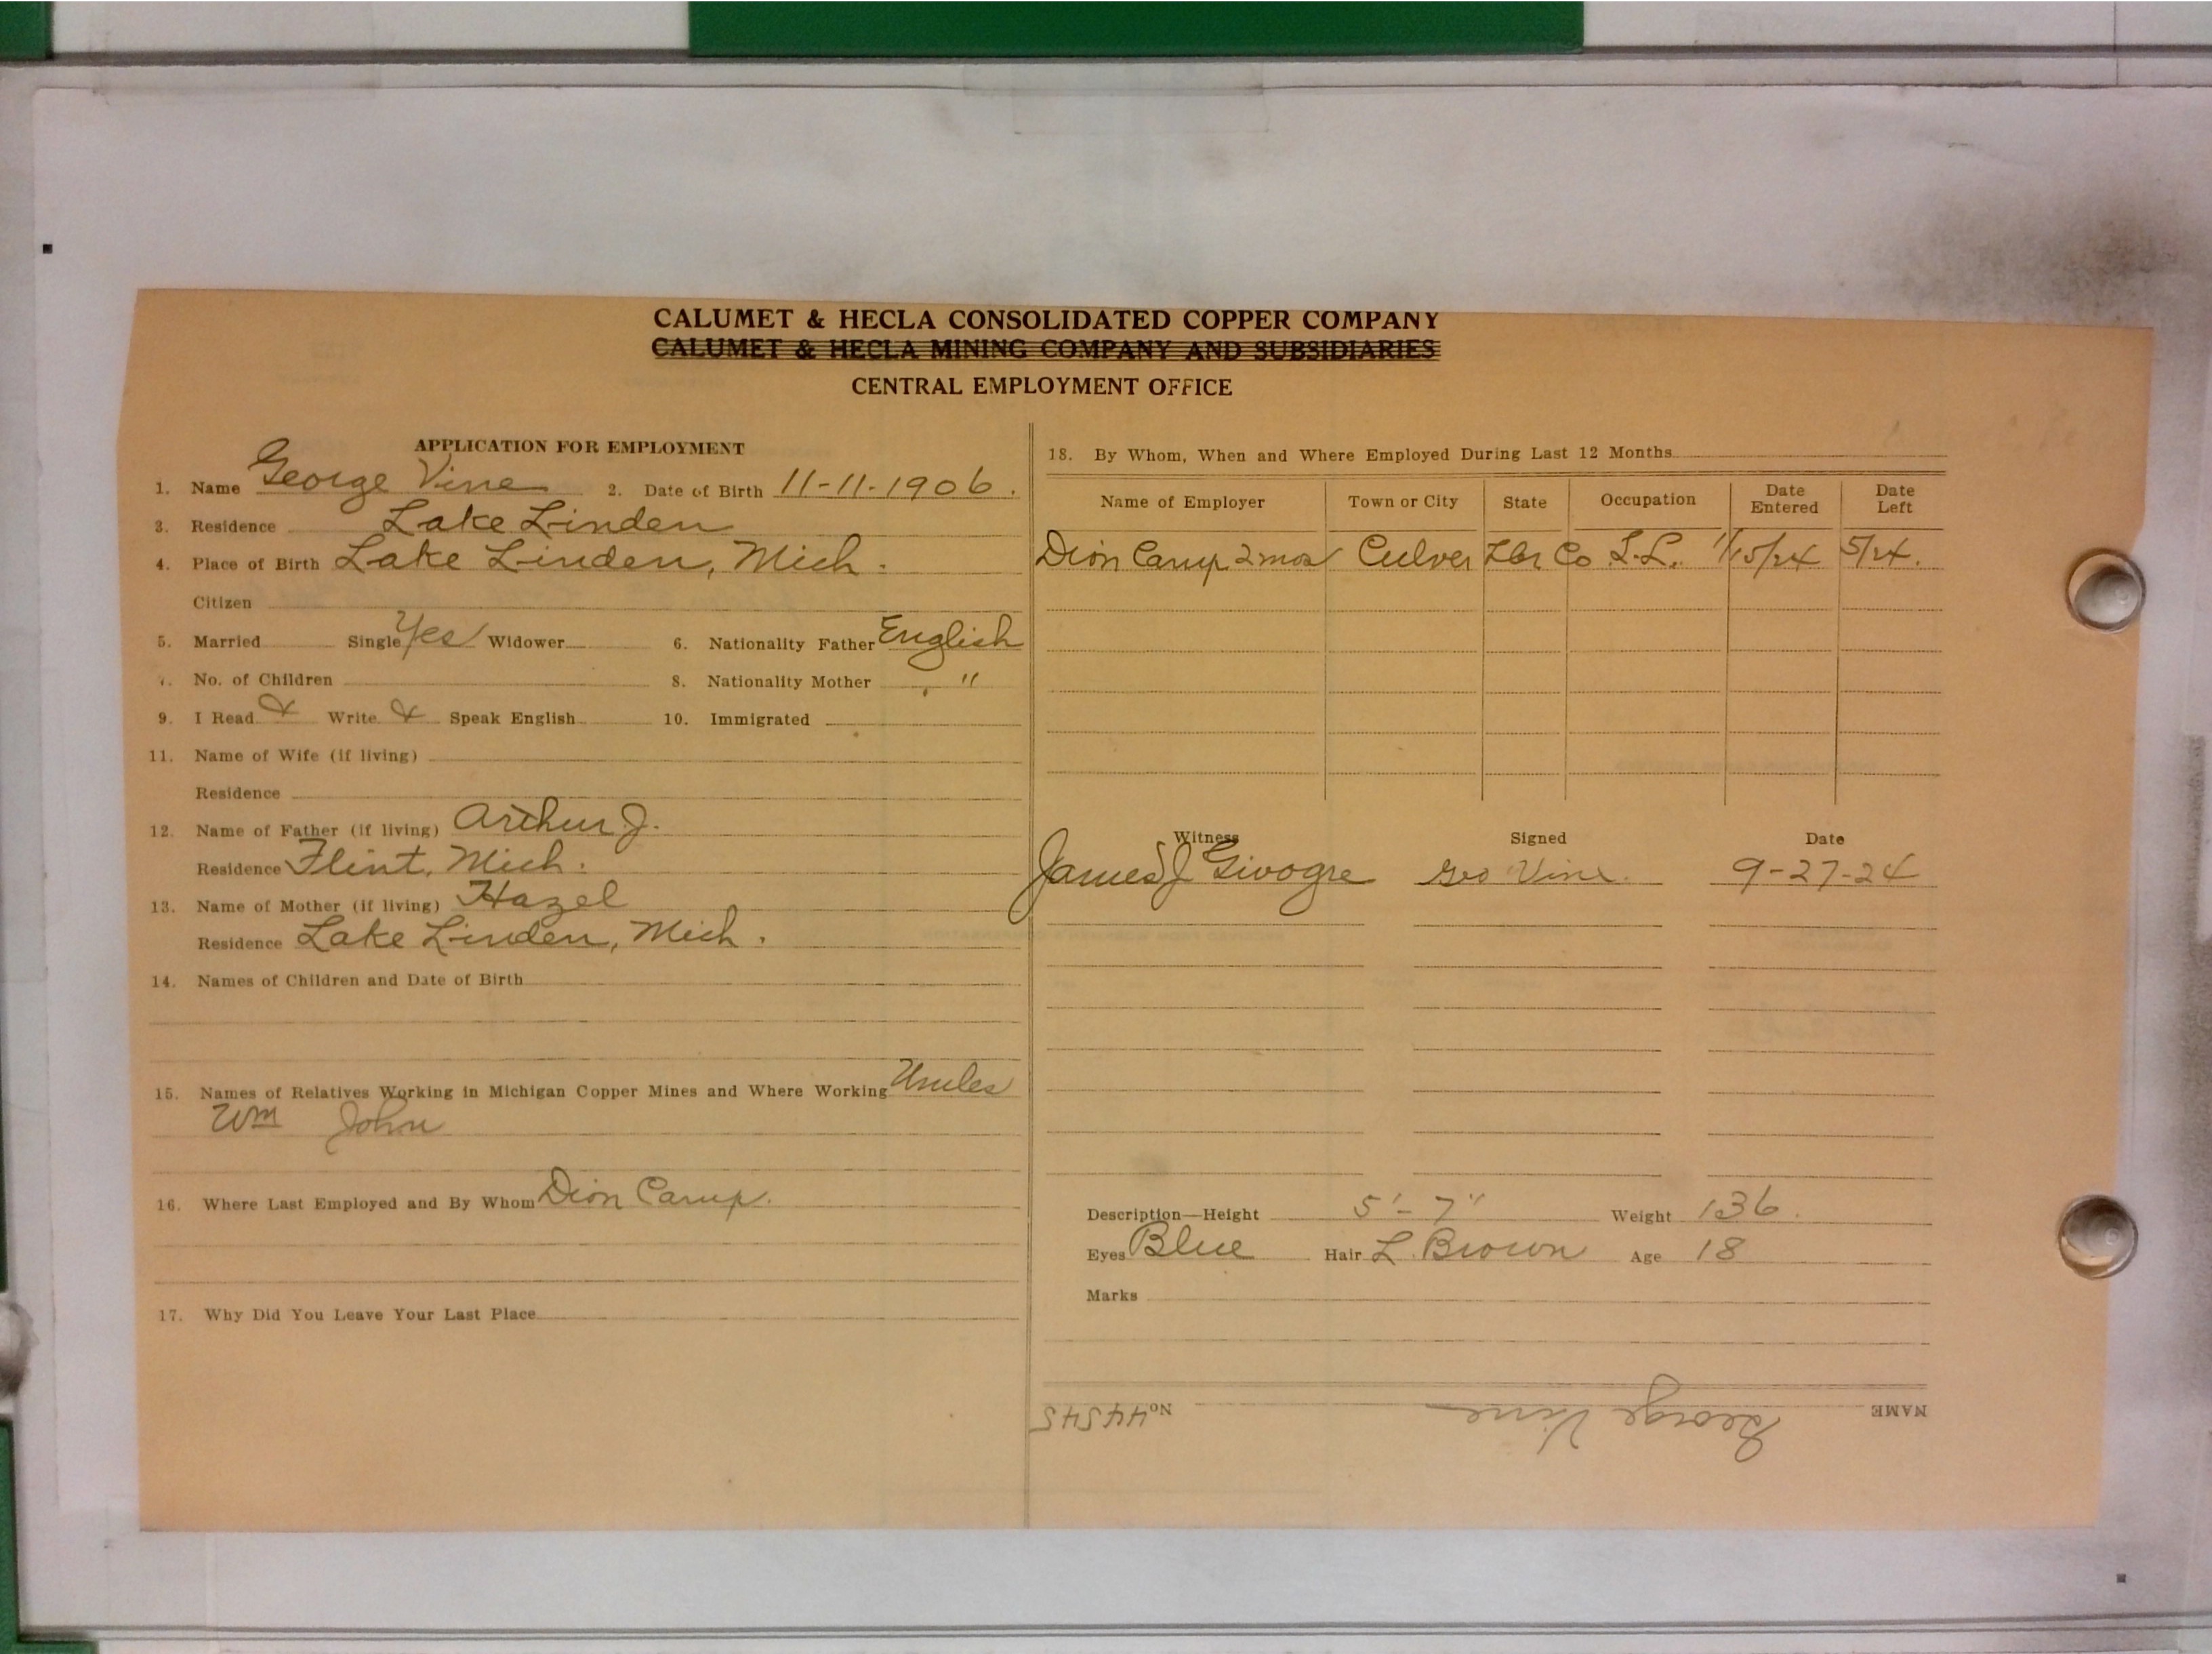 CALUMET & HECLA CONSOLIDATED COPPER COMPANY
CALUMET & HECLA MINING COMPANY AND SUBSIDIARIES
CENTRAL EMPLOYMENT OFFICE
APPLICATION FOR EMPLOYMENT
1. Name George Vine 2. Date of Birth 11-11-1906.
3. Residence Lake Linden
4. Place of Birth Lake Linden, Mich.
Citizen
5. Married Single Yes Widower 6. Nationality Father English
7. No. of Children 8. Nationality Mother "
9. I Read & Write & Speak English 10. Immigrated
11. Name of Wife (if living)
Residence
12. Name of Father (if living) Arthur J.
Residence Flint, Mich.
13. Name of Mother (if living) Hazel
Residence Lake Linden, Mich.
14. Names of Children and Date of Birth
15. Names of Relatives Working in Michigan Copper Mines and Where Working Uncles
Wm John
16. Where Last Employed and By Whom Dion Camp.
17. Why Did You Leave Your Last Place
18. By Whom, When and Where Employed During Last 12 Months
Name of Employer Town or City State Occupation Date Entered Date Left
Dion Camp 2 mos Culver Lbr Co L.L. 1/15/24 5/24.
Witness Signed Date
James J Givogre Geo Vine. 9-27-24
Description—Height 5'-7" Weight 136.
Eyes Blue Hair L. Brown Age 18
Marks
NAME George Vine No 44545